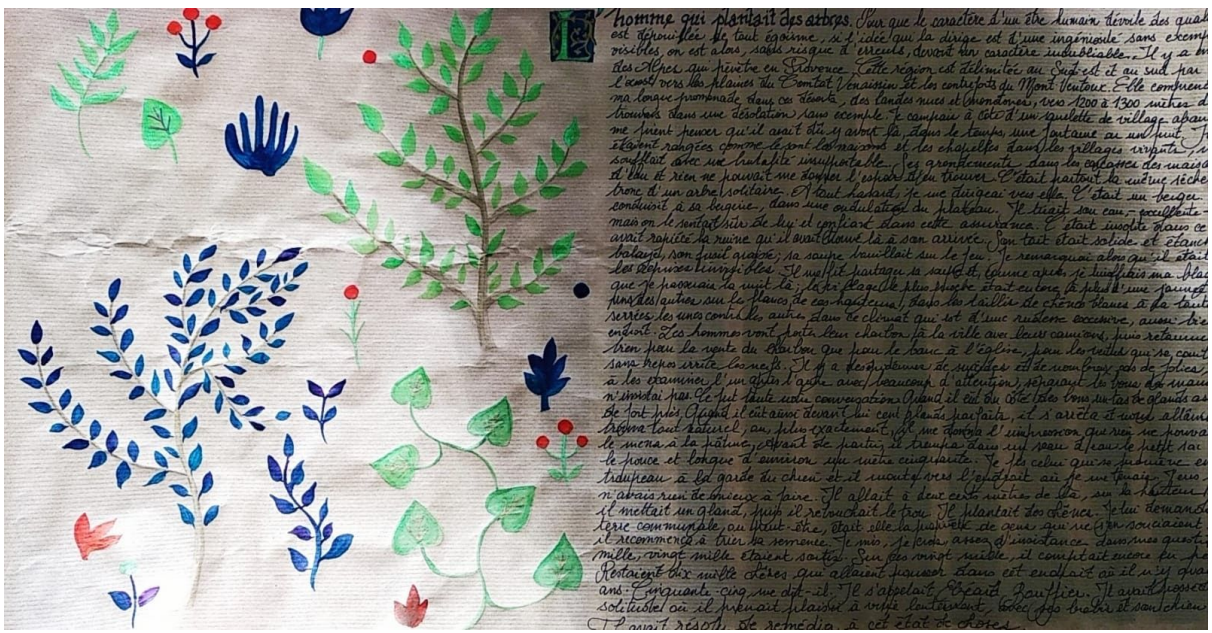 L'homme qui plantait des arbres. Pour que le caractère d'un être humain dévoile des qual
est dépouillée de tout égoïsme, si l'idée qui la dirige est d'une sans exemp
visibles, on est alors, sans risque d'erreurs, devant un caractère inoubliable. Il y a en
des Alpes qui pénètre en Provence. Cette région est délimitée au Sud-est et au sud par
l'ouest vers les plaines du Comtat Venaissin et les contreforts du Mont Ventoux. Elle comprend
ma longue promenade dans ces déserts, des landes nues et monotones, vers 1200 à 1300 mètres d
trouvais dans une désolation sans exemple. Je campais à côté d'un squelette de village aban
me firent penser qu'il avait dû y avoir là, dans le temps, une fontaine ou un puit.
étaient rangées comme le sont les maisons et les chapelles dans les villages vivants,
soufflait avec une brutalité insupportable. Ses grondements dans les carcasses des maiso
d'eau et rien ne pouvait me donner l'espoir d'en trouver. C'était partout la même séche
tronc d'un arbre solitaire. A tout hasard je me dirigeai vers elle. C'était un berger.
conduisit à sa bergerie, dans une ondulation du plateau. Il tirait son eau, - excellente -
mais on le sentait sûr de lui et confiant dans cette assurance. C'était insolite dans ce
avait rapiécé la ruine qu'il avait trouvé là à son arrivée. Son toit était solide et étanch
balayé, son fusil graissé; sa soupe bouillait sur le feu. Je remarquai alors qu'il était
les reprises invisibles. Il me fit partager sa soupe et, comme après je lui ma blag
que je passerais la nuit là; le village le plus proche était encore à plus d'une journée
uns des autres sur les flancs de ces hauteurs, dans les taillis de chênes blancs à la tout
serrées les unes contre les autres dans ce climat qui est d'une rudesse excessive, aussi bie
endroit. Les hommes vont porter leur charbon à la ville avec leurs camions, puis retourne
bien pour la vente du charbon que pour le banc à l'église, pour les vertus qui se
sans repos irrite les nerfs. Il y a des épidémies de suicides et de nombreux cas de folies,
à les examiner l'un après l'autre avec beaucoup d'attention, séparant les bons des mauv
n'insistai pas. Ce fut toute notre conversation. Quand il eut du côté des bons un tas de glands as
de fort près. Quand il eut ainsi devant lui cent glands parfaits, il s'arrêta et nous allâme
trouva tout naturel, ou plus exactement, il me donna l'impression que rien ne pouva
le mena à la pâture. Avant de partir, il trempa dans un seau d'eau le petit sac
le pouce et longue d'environ un mètre cinquante. Je fis celui qui se promène en
troupeau à la garde du chien et il monta vers l'endroit où je me tenais.
n'avais rien de mieux à faire. Il allait à deux cents mètres de là, sur la hauteur.
il mettait un gland, puis il rebouchait le trou. Il plantait des chênes. Je lui demanda
terre communale, ou peut-être, était elle la propriété de gens qui ne s'en souciaient
il recommença à trier sa semence. Je mis, je crois, assez d'insistance dans mes questi
mille, vingt mille étaient sortis. Sur ces vingt mille, il comptait encore en
Restaient dix mille chênes qui allaient pousser dans cet endroit où il n'y avai
ans. Cinquante-cinq, me dit-il. Il s'appelait Elzéard Bouffier. Il avait possédé
solitude où il prenait plaisir à vivre lentement, avec ses brebis et son chien
Il avait résolu de remédier à cet état de choses.